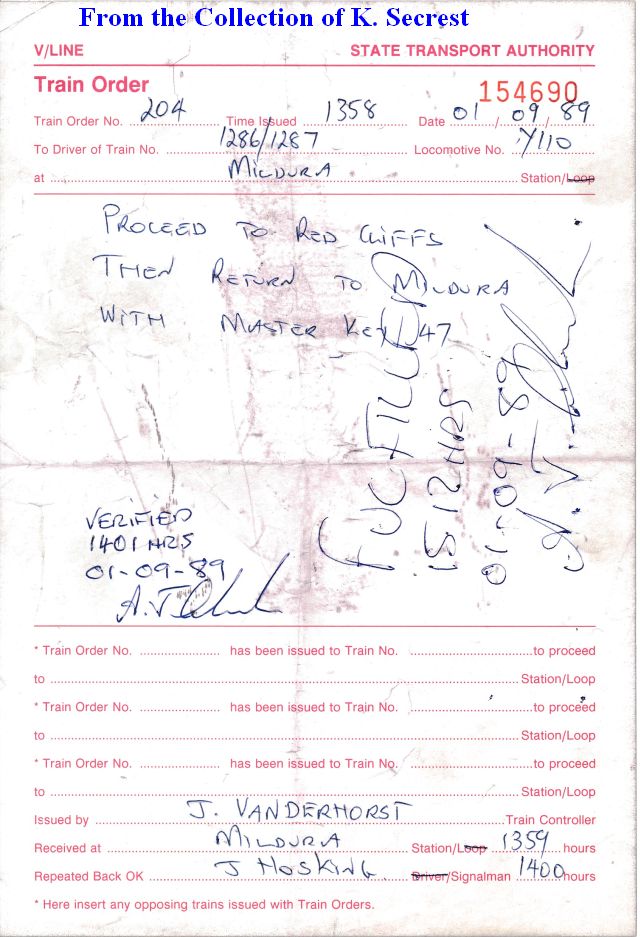 From the Collection of K. Secrest
V/LINE STATE TRANSPORT AUTHORITY
Train Order 154690
Train Order No. 204 Time Issued 1358 Date 01/09/89
To Driver of Train No. 1286/1287 Locomotive No. Y110
at MILDURA Station/Loop
PROCEED TO RED CLIFFS
THEN RETURN TO MILDURA
WITH MASTER KEY 47
FULFILLED
1512 HRS
01-09-89
VERIFIED
1401 HRS
01-09-89
* Train Order No. has been issued to Train No. to proceed
to Station/Loop
* Train Order No. has been issued to Train No. to proceed
to Station/Loop
* Train Order No. has been issued to Train No. to proceed
to Station/Loop
Issued by J. VANDERHORST Train Controller
Received at MILDURA Station/Loop 1359 hours
Repeated Back OK J HOSKING Driver/Signalman 1400 hours
* Here insert any opposing trains issued with Train Orders.